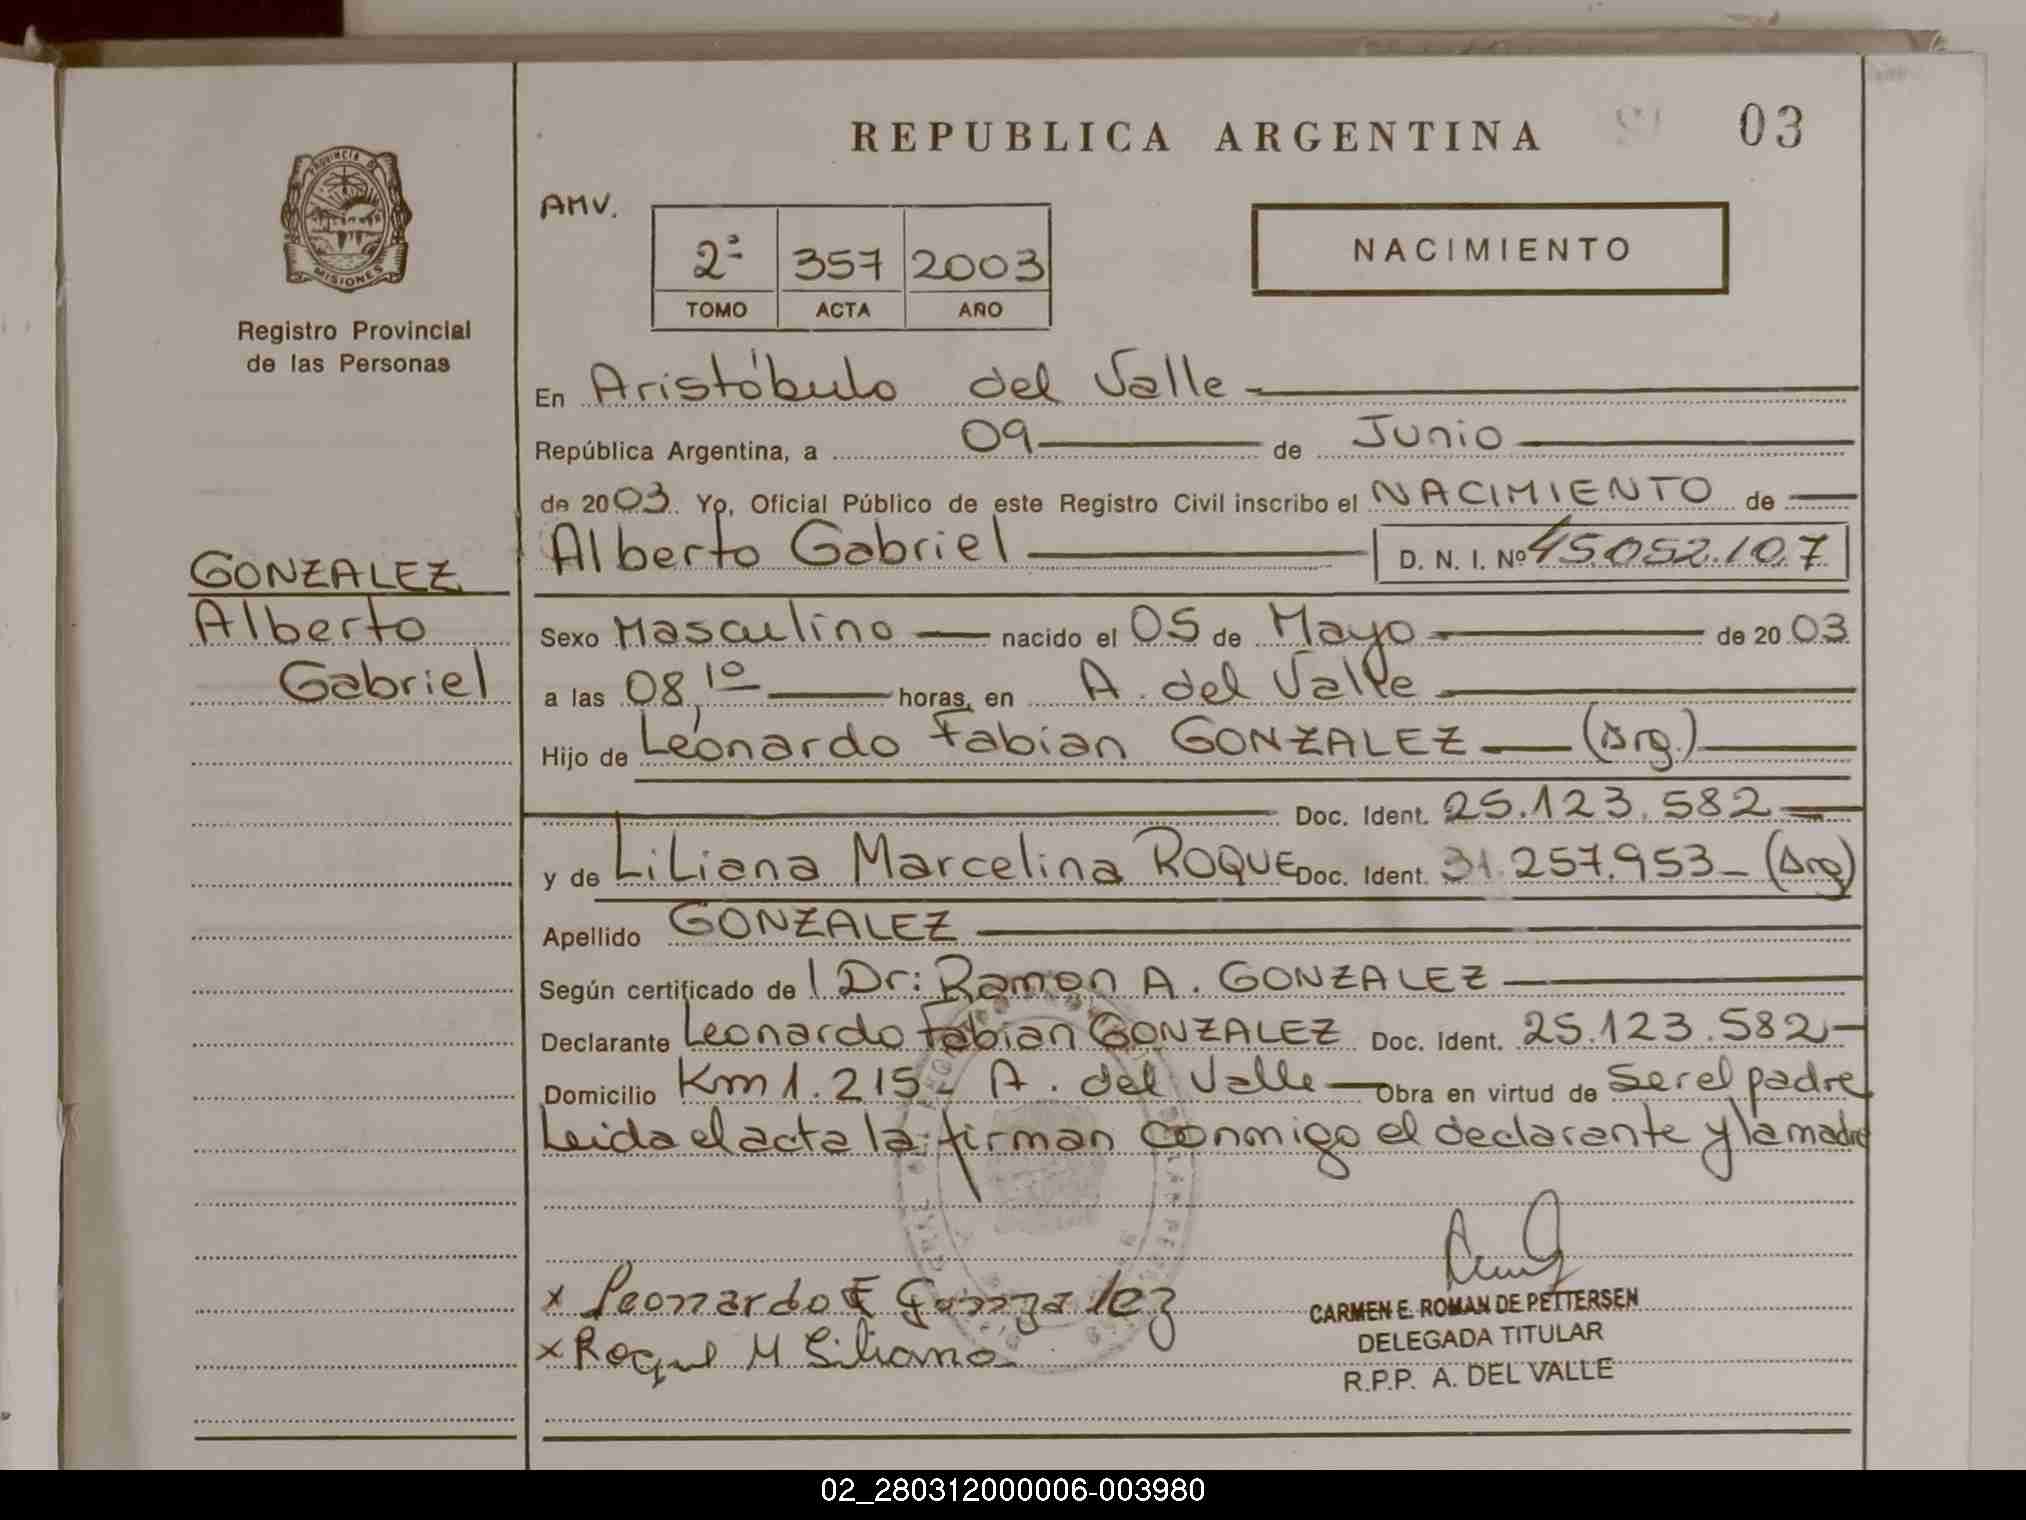 REPUBLICA ARGENTINA
03
PROVINCIA DE
MISIONES
Registro Provincial
de las Personas
AMV.
2ª 357 2003
TOMO ACTA AÑO
NACIMIENTO
En Aristóbulo del Valle
República Argentina, a 09 de Junio
de 2003. Yo, Oficial Público de este Registro Civil inscribo el NACIMIENTO de
GONZALEZ
Alberto
Gabriel
Alberto Gabriel D. N. I. Nº 45.052.107
Sexo Masculino nacido el 05 de Mayo de 2003
a las 08,10 horas, en A. del Valle
Hijo de Leonardo Fabian GONZALEZ (Arg.)
Doc. Ident. 25.123.582
y de Liliana Marcelina ROQUE Doc. Ident. 31.257.953 (Arg)
Apellido GONZALEZ
Según certificado de Dr: Ramon A. GONZALEZ
Declarante Leonardo Fabian GONZALEZ Doc. Ident. 25.123.582
Domicilio Km 1.215 - A. del Valle Obra en virtud de ser el padre
Leida el acta la firman conmigo el declarante y la madre
x Leonardo F Gonzalez
x Roque M Liliana
CARMEN E. ROMAN DE PETTERSEN
DELEGADA TITULAR
R.P.P. A. DEL VALLE
02_280312000006-003980